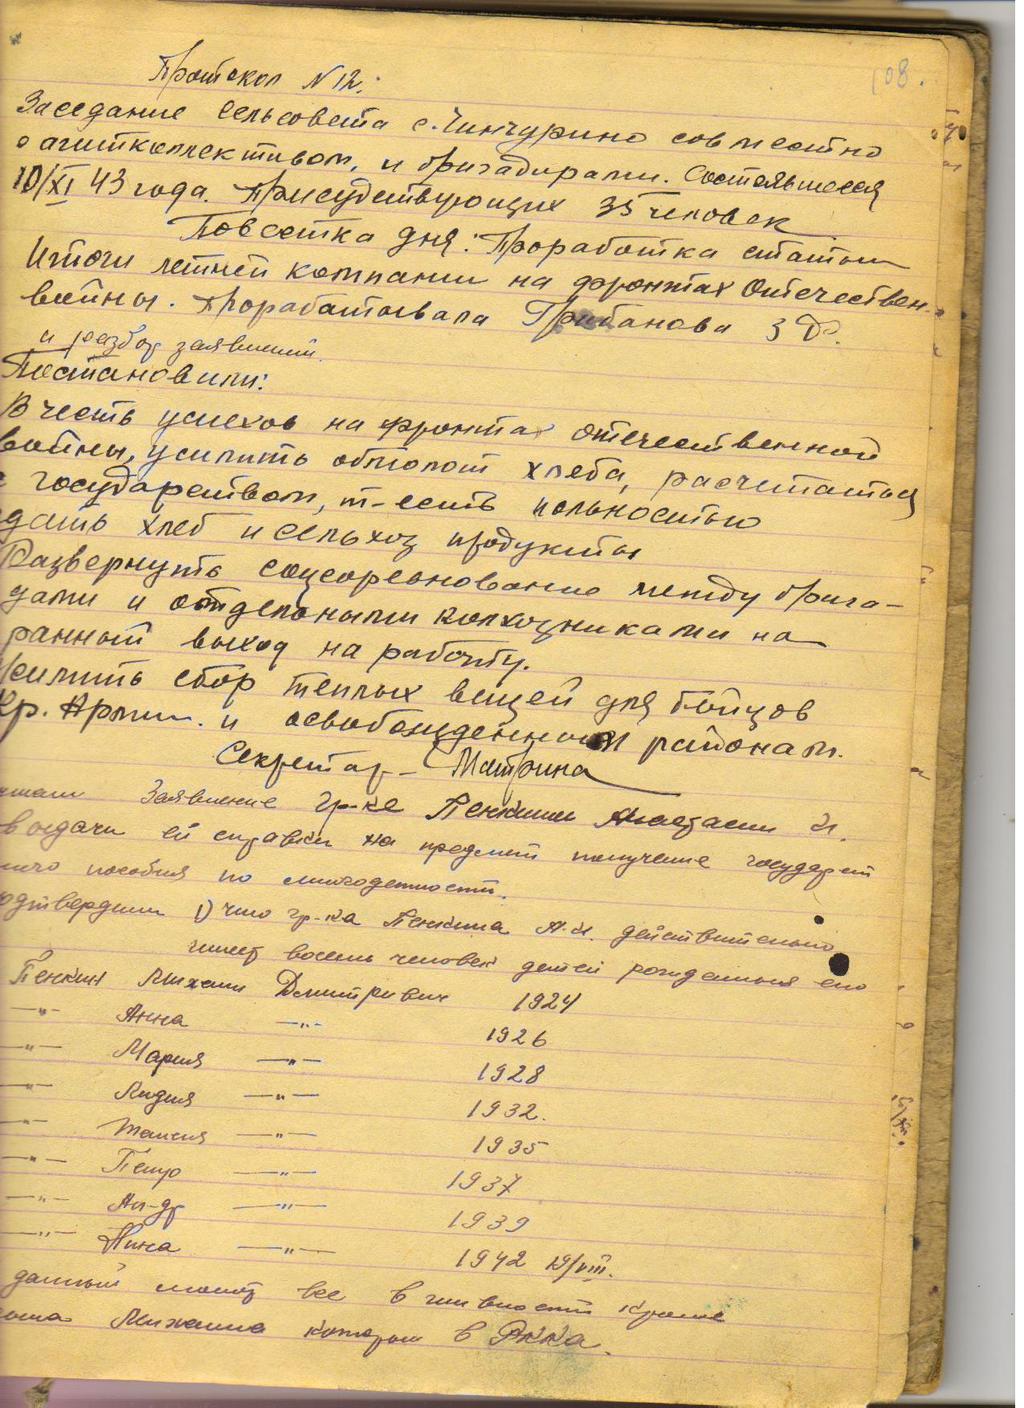 108.
Протокол N 12.
Заседание сельсовета с. Чинчурино совместно
с агитколлективом, и бригадирами. Состоявшееся
10/XI 43 года. Присудствующих 35 человек
Повестка дня: Проработка статьи
Итоги летней компании на фронтах Отечествен.
войны. Прорабатывала Грибанова З Ф.
и разбор заявлений.
Постановили:
В честь успехов на фронтах отечественной
войны, усилить обмолот хлеба, расчетаться
с государством, т-есть польностью
дать хлеб и сельхоз продукты
Развернуть соцсоревнование между брига-
дами и отдельными колхозниками на
ранный выход на работу.
Усилить сбор теплых вещей для бойцов
Кр. Армии. и освобожденным районам.
Секретарь – Матрина
Заявление гр-ке Пенкиной Анастасии И.
выдачи ей справки на предмет получение государст
пособия по многодетности.
1) что гр-ка Пенкина А.И. действительно
имеет восемь человек детей рожденных ею
Пенкин Михаил Дмитриевич 1924
–"– Анна –"– 1926
–"– Мария –"– 1928
–"– Лидия –"– 1932.
–"– Таисия –"– 1935
–"– Петр –"– 1937
–"– Ал-др –"– 1939
–"– Нина –"– 1942 19/VIII.
данный момент все в живности кроме
Михаила который в РККА.